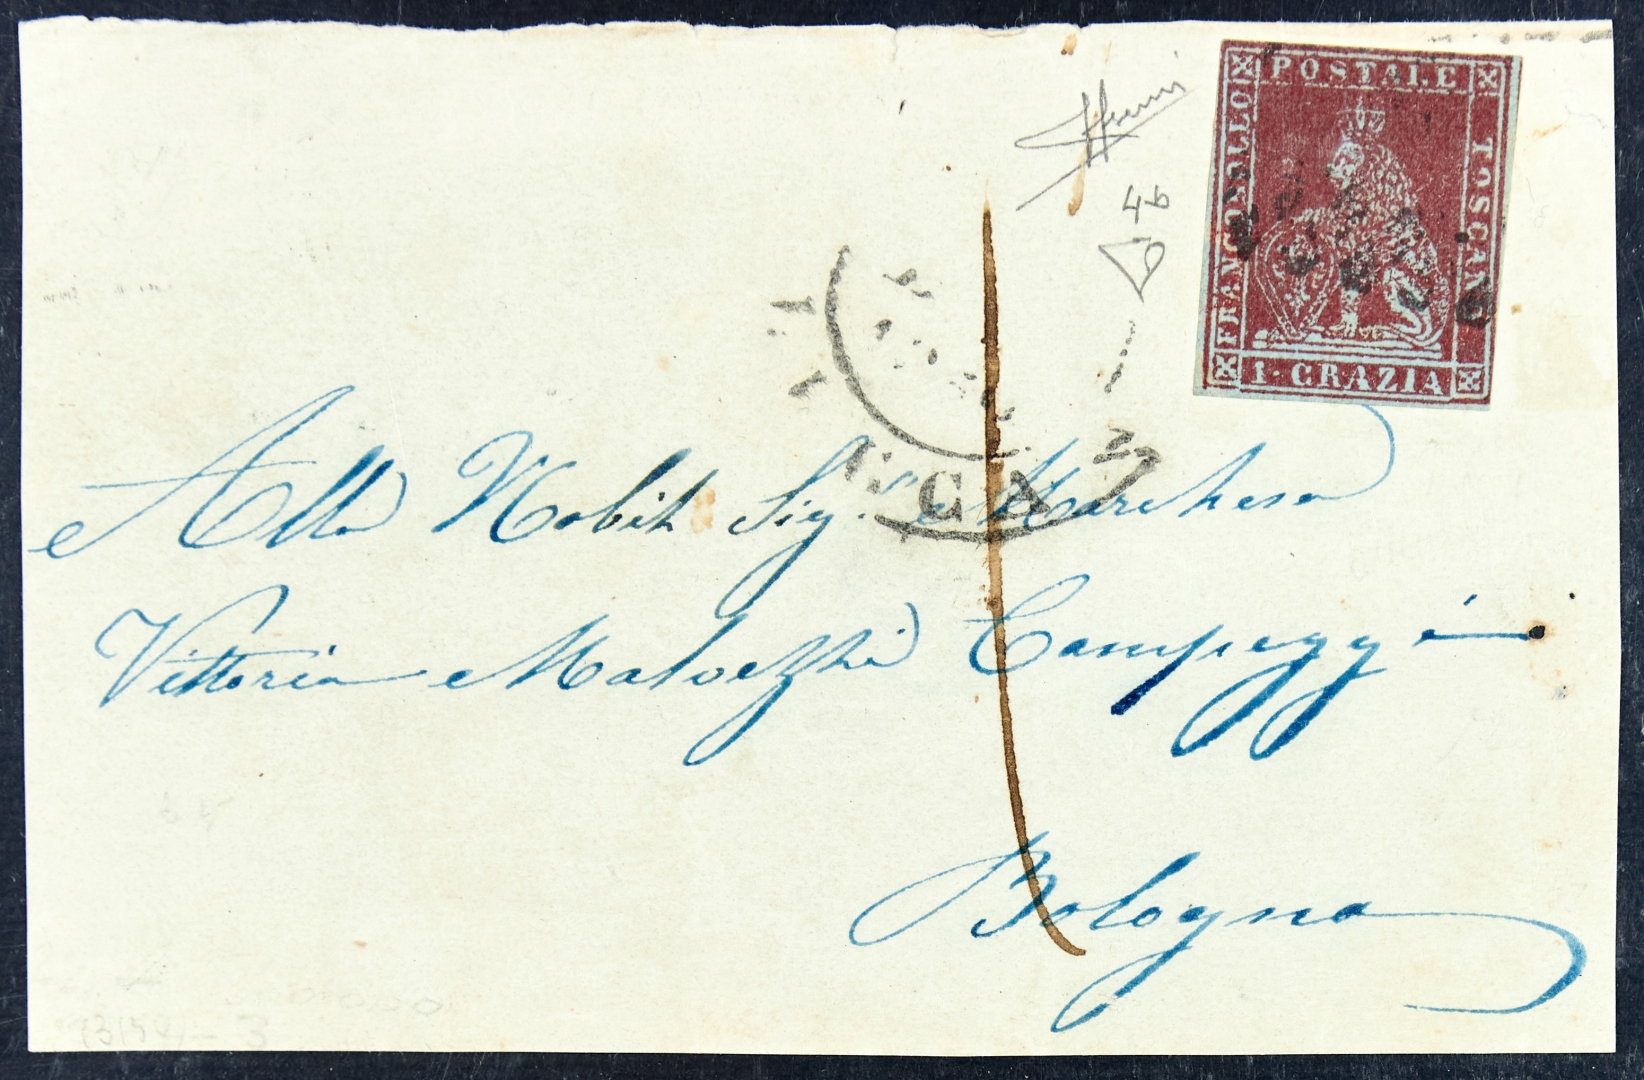 FRANCOBOLLO POSTALE TOSCANO
1·CRAZIA
4b
Alla Nobile Sig.ra Marchesa
Vittoria Malvezzi Campeggi
Bologna
3